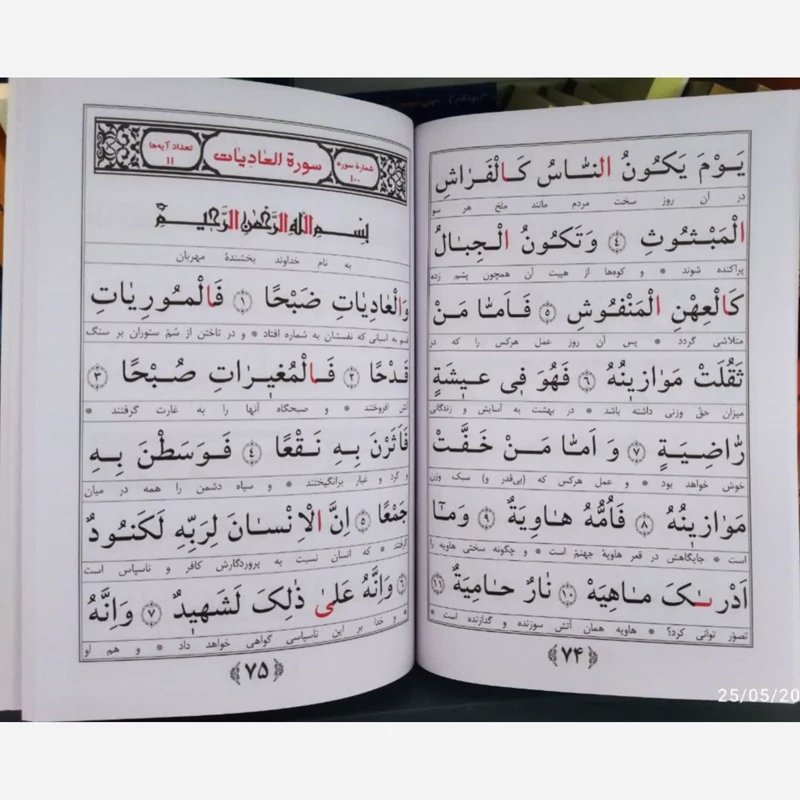 یَوْمَ یَکُونُ النّاسُ کَالْفَراشِ
در آن روز سخت مردم مانند ملخ هر سو
الْمَبْثُوثِ ﴿۴﴾ وَتَکُونُ الْجِبالُ
پراکنده شوند * و کوه‌ها از هیبت آن همچون پشم زده
کَالْعِهْنِ الْمَنْفُوشِ ﴿۵﴾ فَاَمّا مَنْ
متلاشی گردد * پس آن روز عمل هرکس را که در
ثَقُلَتْ مَوازینُهُ ﴿۶﴾ فَهُوَ فی عیشَةٍ
میزان حقّ وزنی داشته باشد * در بهشت به آسایش و زندگانی
رّاضِیَةٍ ﴿۷﴾ وَ اَمّا مَنْ خَفَّتْ
خوش خواهد بود * و عمل هرکس که (بی‌قدر و) سبک وزن
مَوازینُهُ ﴿۸﴾ فَاُمُّهُ هاوِیَةٌ ﴿۹﴾ وَمآ
است * جایگاهش در قعر هاویهٔ جهنّم است * و چگونه سختی هاویه را
اَدْریٰکَ ماهِیَهْ ﴿۱۰﴾ نارٌ حامِیَةٌ ﴿۱۱﴾
تصوّر توانی کرد؟ * هاویه همان آتش سوزنده و گدازنده است *
۷۴
شمارهٔ سوره
۱۰۰
سورة العادیات
تعداد آیه‌ها
۱۱
بِسْمِ اللّهِ الرَّحْمٰنِ الرَّحیمِ
به نام خداوند بخشندهٔ مهربان
وَالْعادِیاتِ ضَبْحًا ﴿۱﴾ فَالْمُورِیاتِ
قسم به اسبانی که نفسشان به شماره افتاد * و در تاختن از سُمّ ستوران بر سنگ
قَدْحًا ﴿۲﴾ فَالْمُغیراتِ صُبْحًا ﴿۳﴾
آتش افروختند * و صبحگاه آنها را به غارت گرفتند *
فَاَثَرْنَ بِهِ نَقْعًا ﴿۴﴾ فَوَسَطْنَ بِهِ
و گرد و غبار برانگیختند * و سپاه دشمن را همه در میان
جَمْعًا ﴿۵﴾ اِنَّ الْاِنْسانَ لِرَبِّهِ لَکَنُودٌ
گرفتند * که انسان نسبت به پروردگارش کافر و ناسپاس است
﴿۶﴾ وَاِنَّهُ عَلیٰ ذٰلِکَ لَشَهیدٌ ﴿۷﴾ وَاِنَّهُ
* و خدا بر این ناسپاسی گواهی خواهد داد * و هم او
۷۵
25/05/20